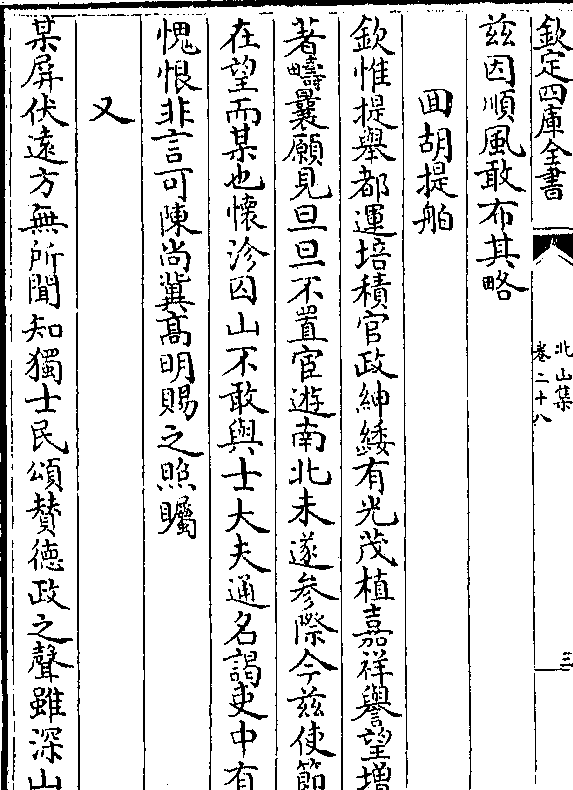 欽定四庫全書
北山集
卷二十八
三
茲因順風敢布其略
回胡提舶
欽惟提舉都運培積官政紳緌有光茂植嘉祥譽望增
著疇曩願見旦旦不置宦遊南北未遂參際今茲使節
在望而某也懷沴囚山不敢與士大夫通名謁吏中有
愧恨非言可陳尚冀高明賜之照矚
又
某屏伏遠方無所聞知獨士民頌賛德政之聲雖深山